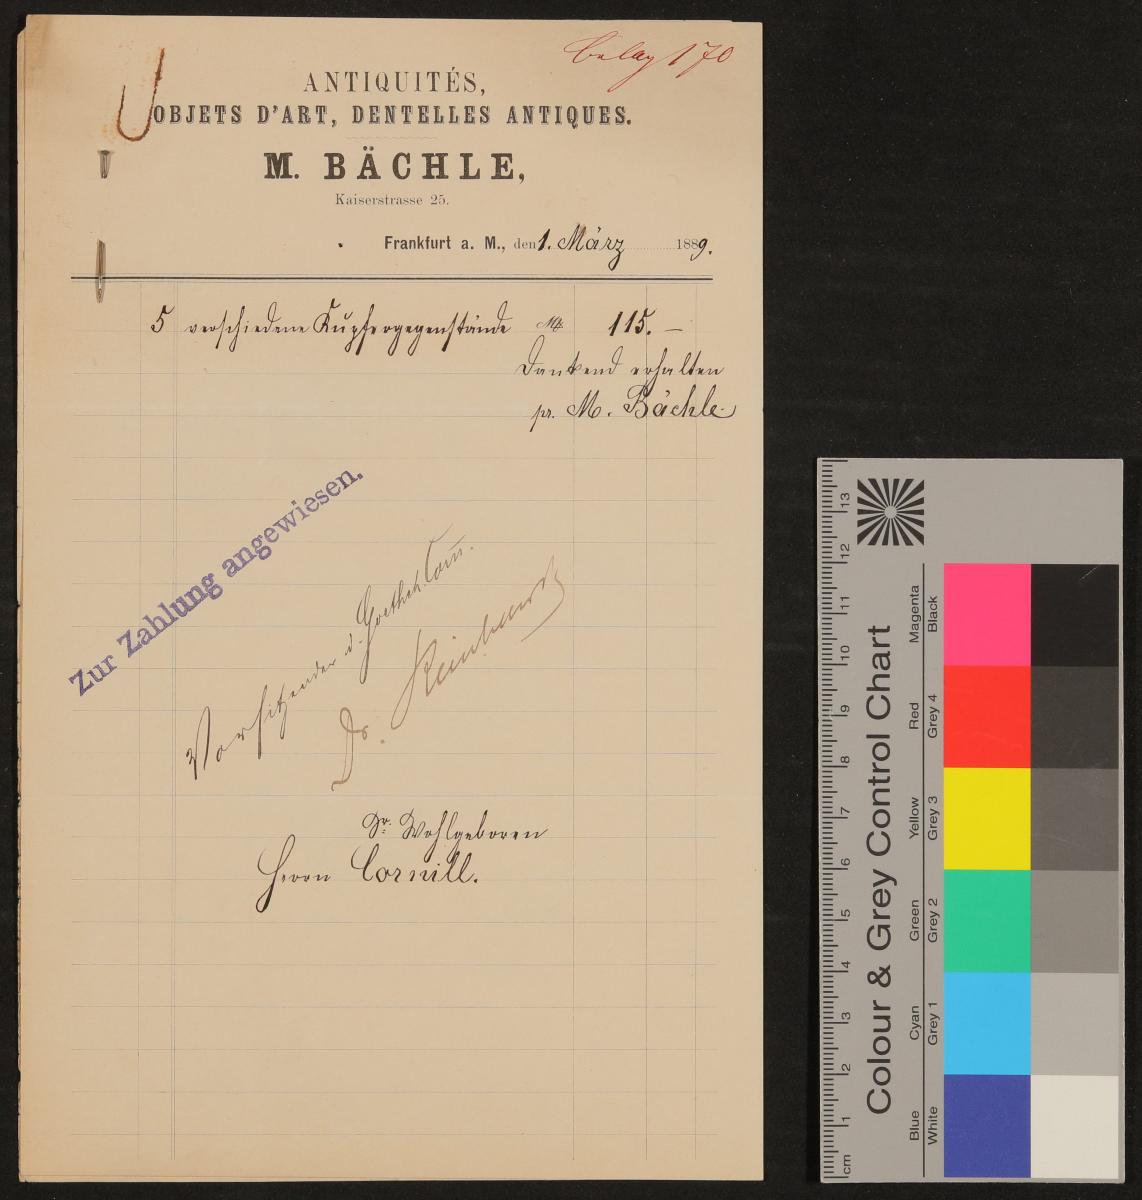 belag 170
ANTIQUITÉS,
OBJETS D'ART, DENTELLES ANTIQUES.
M. BÄCHLE,
Kaiserstrasse 25.
Frankfurt a. M., den 1. März 1889.
5 verschiedene Kupfergegenstände M 115.—
Dankend erhalten
pr. M. Bächle
Zur Zahlung angewiesen.
Vorsitzender d. Goetheh. Com.
Dr. Reinhardt
Sr. Wohlgeboren
Herrn Cornill.
Colour & Grey Control Chart
Blue Cyan Green Yellow Red Magenta
White Grey 1 Grey 2 Grey 3 Grey 4 Black
cm 1 2 3 4 5 6 7 8 9 10 11 12 13